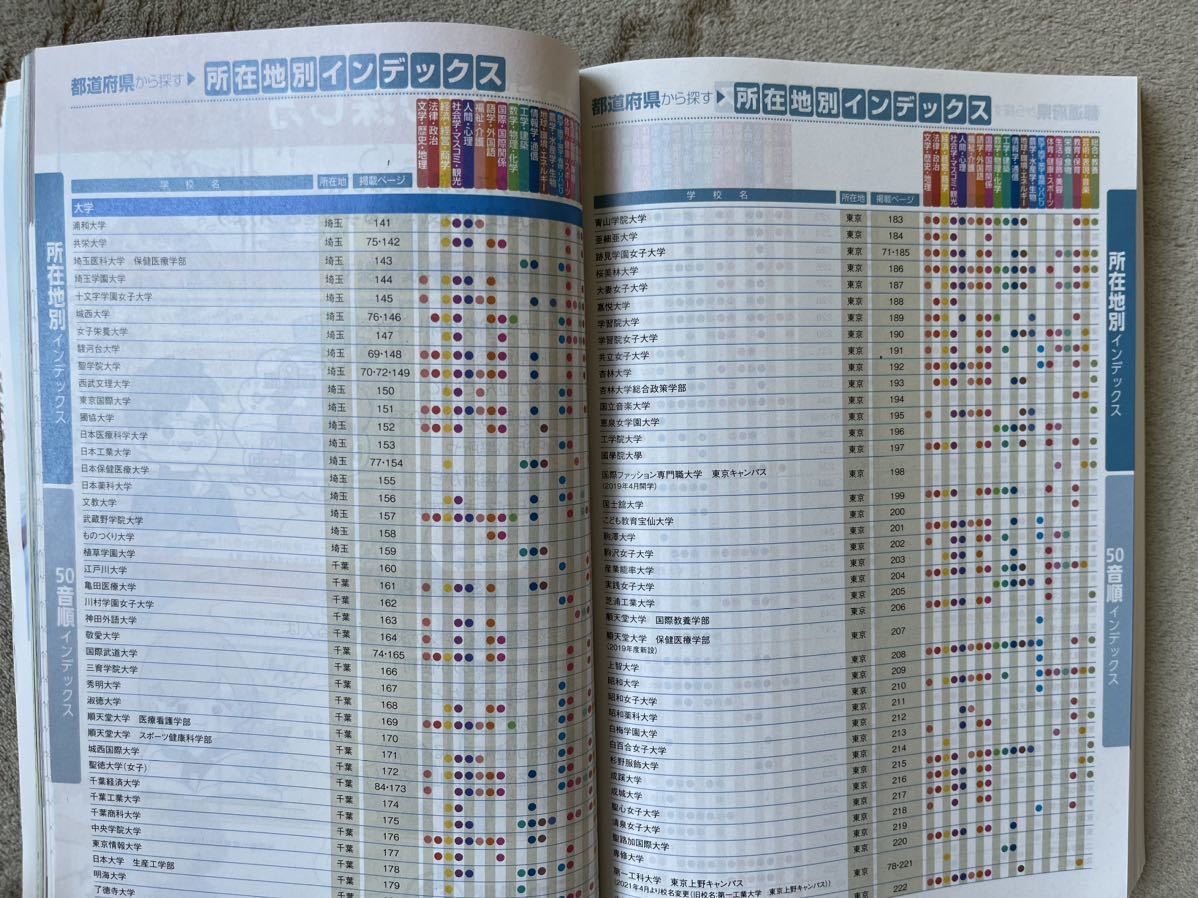 都道府県から探す 所在地別インデックス
文学・歴史・地理
法律・政治
経済・経営・商学
社会学・マスコミ・観光
人間・心理
福祉・介護
語学・外国語
国際・国際関係
数学・物理・化学
工学・建築
情報学・通信
地球・環境・エネルギー
農学・水産学・生物
学校名 所在地 掲載ページ
大学
浦和大学 埼玉 141
共栄大学 埼玉 75・142
埼玉医科大学 保健医療学部 埼玉 143
埼玉学園大学 埼玉 144
十文字学園女子大学 埼玉 145
城西大学 埼玉 76・146
女子栄養大学 埼玉 147
駿河台大学 埼玉 69・148
聖学院大学 埼玉 70・72・149
西武文理大学 埼玉 150
東京国際大学 埼玉 151
獨協大学 埼玉 152
日本医療科学大学 埼玉 153
日本工業大学 埼玉 77・154
日本保健医療大学 埼玉 155
日本薬科大学 埼玉 156
文教大学 埼玉 157
武蔵野学院大学 埼玉 158
ものつくり大学 埼玉 159
植草学園大学 千葉 160
江戸川大学 千葉 161
亀田医療大学 千葉 162
川村学園女子大学 千葉 163
神田外語大学 千葉 164
敬愛大学 千葉 74・165
国際武道大学 千葉 166
三育学院大学 千葉 167
秀明大学 千葉 168
淑徳大学 千葉 169
順天堂大学 医療看護学部 千葉 170
順天堂大学 スポーツ健康科学部 千葉 171
城西国際大学 千葉 172
聖徳大学(女子) 千葉 84・173
千葉経済大学 千葉 174
千葉工業大学 千葉 175
千葉商科大学 千葉 176
中央学院大学 千葉 177
東京情報大学 千葉 178
日本大学 生産工学部 千葉 179
明海大学
了徳寺大学
所在地別インデックス
50音順インデックス
都道府県から探す 所在地別インデックス
文学・歴史・地理
法律・政治
経済・経営・商学
社会学・マスコミ・観光
人間・心理
福祉・介護
語学・外国語
国際・国際関係
数学・物理・化学
工学・建築
情報学・通信
地球・環境・エネルギー
農学・水産学・生物
医学・歯学・看護・リハビリ
体育・健康・スポーツ
生活・服飾・美容
栄養・食物
教育・保育
芸術・表現・音楽
総合・教養
学校名 所在地 掲載ページ
青山学院大学 東京 183
亜細亜大学 東京 184
跡見学園女子大学 東京 71・185
桜美林大学 東京 186
大妻女子大学 東京 187
嘉悦大学 東京 188
学習院大学 東京 189
学習院女子大学 東京 190
共立女子大学 東京 191
杏林大学 東京 192
杏林大学総合政策学部 東京 193
国立音楽大学 東京 194
恵泉女学園大学 東京 195
工学院大学 東京 196
國學院大學 東京 197
国際ファッション専門職大学 東京キャンパス 東京 198
(2019年4月開学)
国士舘大学 東京 199
こども教育宝仙大学 東京 200
駒澤大学 東京 201
駒沢女子大学 東京 202
産業能率大学 東京 203
実践女子大学 東京 204
芝浦工業大学 東京 205
順天堂大学 国際教養学部 東京 206
順天堂大学 保健医療学部 東京 207
(2019年度新設)
上智大学 東京 208
昭和大学 東京 209
昭和女子大学 東京 210
昭和薬科大学 東京 211
白梅学園大学 東京 212
白百合女子大学 東京 213
杉野服飾大学 東京 214
成蹊大学 東京 215
成城大学 東京 216
聖心女子大学 東京 217
清泉女子大学 東京 218
聖路加国際大学 東京 219
専修大学 東京 220
第一工科大学 東京上野キャンパス 東京 78・221
(2021年4月より校名変更(旧校名:第一工業大学 東京上野キャンパス))
東京 222
所在地別インデックス
50音順インデックス